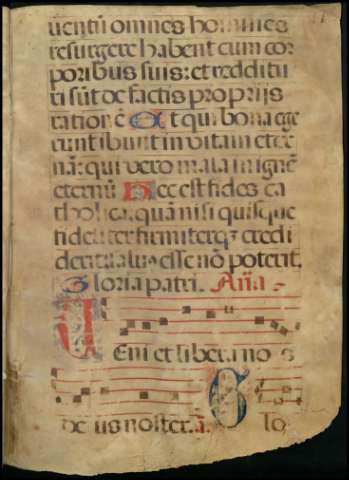 uentū omnes homines
resurgere habent cum cor
poribus suis: et redditu
ri sūt de factis proprijs
rationē Et qui bona ege
runt ibunt in vitam eter
nā: qui vero mala in ignē
eternū Hec est fides ca
tholica, quā nisi quisque
fideliter firmiterqꝫ credi
derit saluus esse nō poterit.
Gloria patri. Aña
Ueni et libera nos
deus noster. ā. Glo